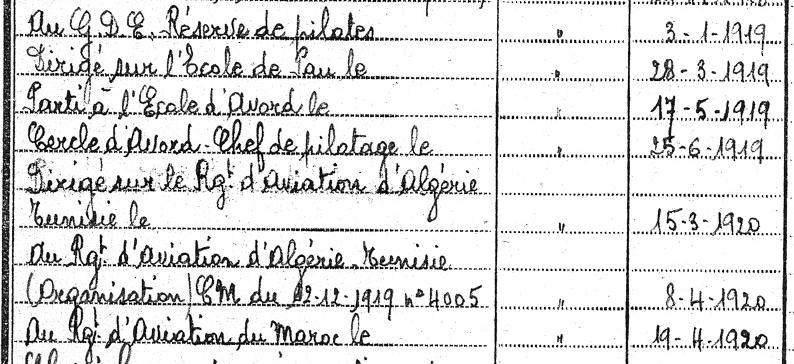 Au G.D.E. Réserve de pilotes " 3-1-1919
Dirigé sur l'Ecole de Pau le " 28-3-1919
Parti à l'Ecole d'Avord le " 17-5-1919
Cercle d'Avord-Chef de pilotage le " 25-6-1919
Dirigé sur le Rgt d'Aviation d'Algérie
Tunisie le " 15-3-1920
Au Rgt d'Aviation d'Algérie-Tunisie
(Organisation) CM du 12-12-1919 n°4005 " 8-4-1920
Au Rgt d'Aviation du Maroc le " 19-4-1920